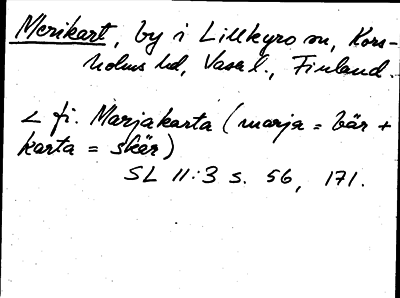 Merikart, by i Lillkyro sn, Kors-
holms hd, Vasa l., Finland.
< fi. Marjakarta (marja = bär +
karta = skär)
SL 11:3 s. 56, 171.